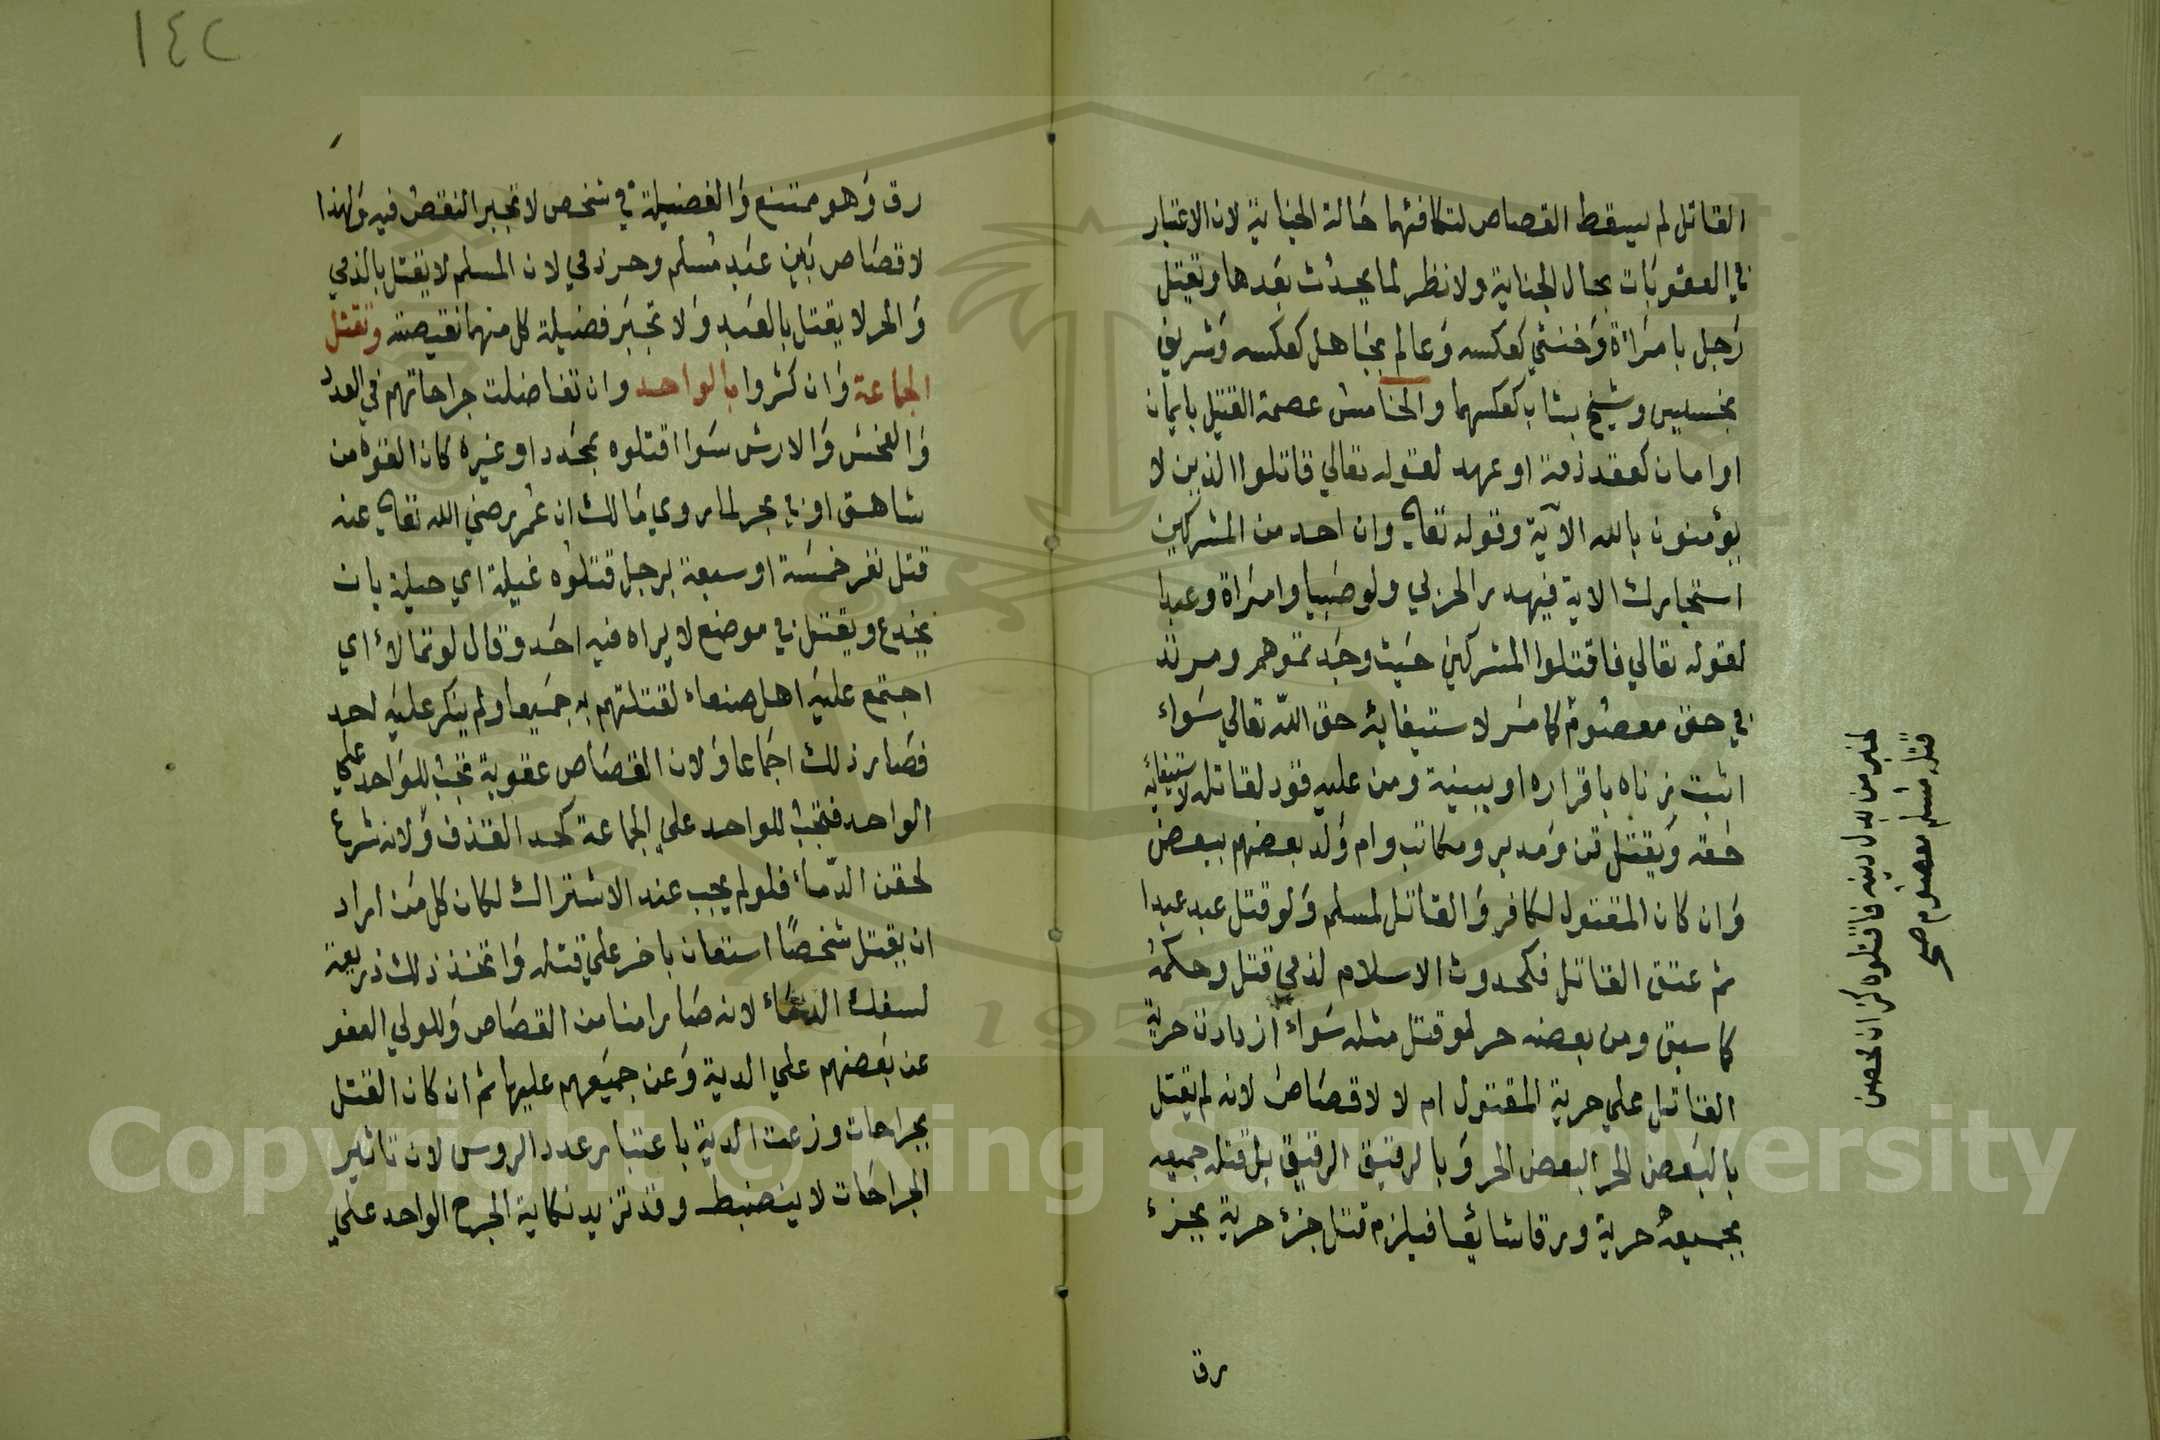 القاتل لم يسقط القصاص لتكافئهما حالة الجناية لان الاعتبار
في العقوبات بحال الجناية ولا نظر لما يحدث بعدها ويقتل
رجل بامراة وخنثي كعكسه وعالم بجاهل كعكسه وشريف
بخسيس وشيخ بشاب كعكسهما والخامس عصمة القتيل بايمان
او امان كعقد ذمة او عهد لقوله تعالي قاتلوا الذين لا
يؤمنون بالله الآية وقوله تعالي وان احد من المشركين
استجارك الاية فيهدر الحربي ولو صبيا وامراة وعبدا
لقوله تعالي فاقتلوا المشركين حيث وجدتموهم ومرتد
في حق معصوم كما مر لاستيفاية حق الله تعالي سواء
اثبت زناه باقراره او ببينة ومن عليه قود لقاتله لاستيفائه
حقه ويقتل قن ومدبر ومكاتب وام ولد بعضهم ببعض
وان كان المقتول لكافر والقاتل لمسلم ولو قتل عبد عبدا
ثم عتق القاتل فكحدوث الاسلام لذمي قتل وحكمه
كما سبق ومن بعضه حر لو قتل مثله سواء ازدادت حرية
القاتل علي حرية المقتول ام لا لا قصاص لانه لم يقتل
بالبعض الحر البعض الحر وبالرقيق الرقيق بل قتله جميعه
بجميعه حرية ورقا شائعا فيلزم قتل جزء حرية بجزء
رق
لخبر من بدل دينه فاقتلوه كزان محصن
قتله مسلم معصوم صح
١٤٢
رق وهو ممتنع والفضيلة في شخص لا تجبر النقص فيه ولهذا
لا قصاص بين عبد مسلم وحر ذمي لان المسلم لا يقتل بالذمي
والحر لا يقتل بالعبد ولا تجبر فضيلة كل منهما نقيصته وتقتل
الجماعة وان كثروا بالواحد وان تفاضلت جراحاتهم في العدد
والفحش والارش سوا اقتلوه بمحدد او غيره كان القوه من
شاهق او في بحر لما روي مالك ان عمر رضي الله تعالي عنه
قتل نفر خمسة او سبعة برجل قتلوه غيلة اي حيلة بان
يخدع ويقتل في موضع لا يراه فيه احد وقال لو تمالاء اي
اجتمع عليه اهل صنعاء لقتلتهم به جميعا ولم ينكر عليه احد
فصار ذلك اجماعا ولان القصاص عقوبة تجب للواحد علي
الواحد فتجب للواحد علي الجماعة كحد القذف ولانه شرع
لحقن الدماء فلو لم يجب عند الاشتراك لكان كل من اراد
ان يقتل شخصا استعان باخر علي قتله واتخذ ذلك ذريعة
لسفك الدماء لانه صار امنا من القصاص وللولي العفو
عن بعضهم علي الدية وعن جميعهم عليها ثم ان كان القتل
بجراحات وزعت الدية باعتبار عدد الروس لان تاثير
الجراحات لا ينضبط وقد تزيد نكاية الجرح الواحد علي
Copyright © King Saud University
1957